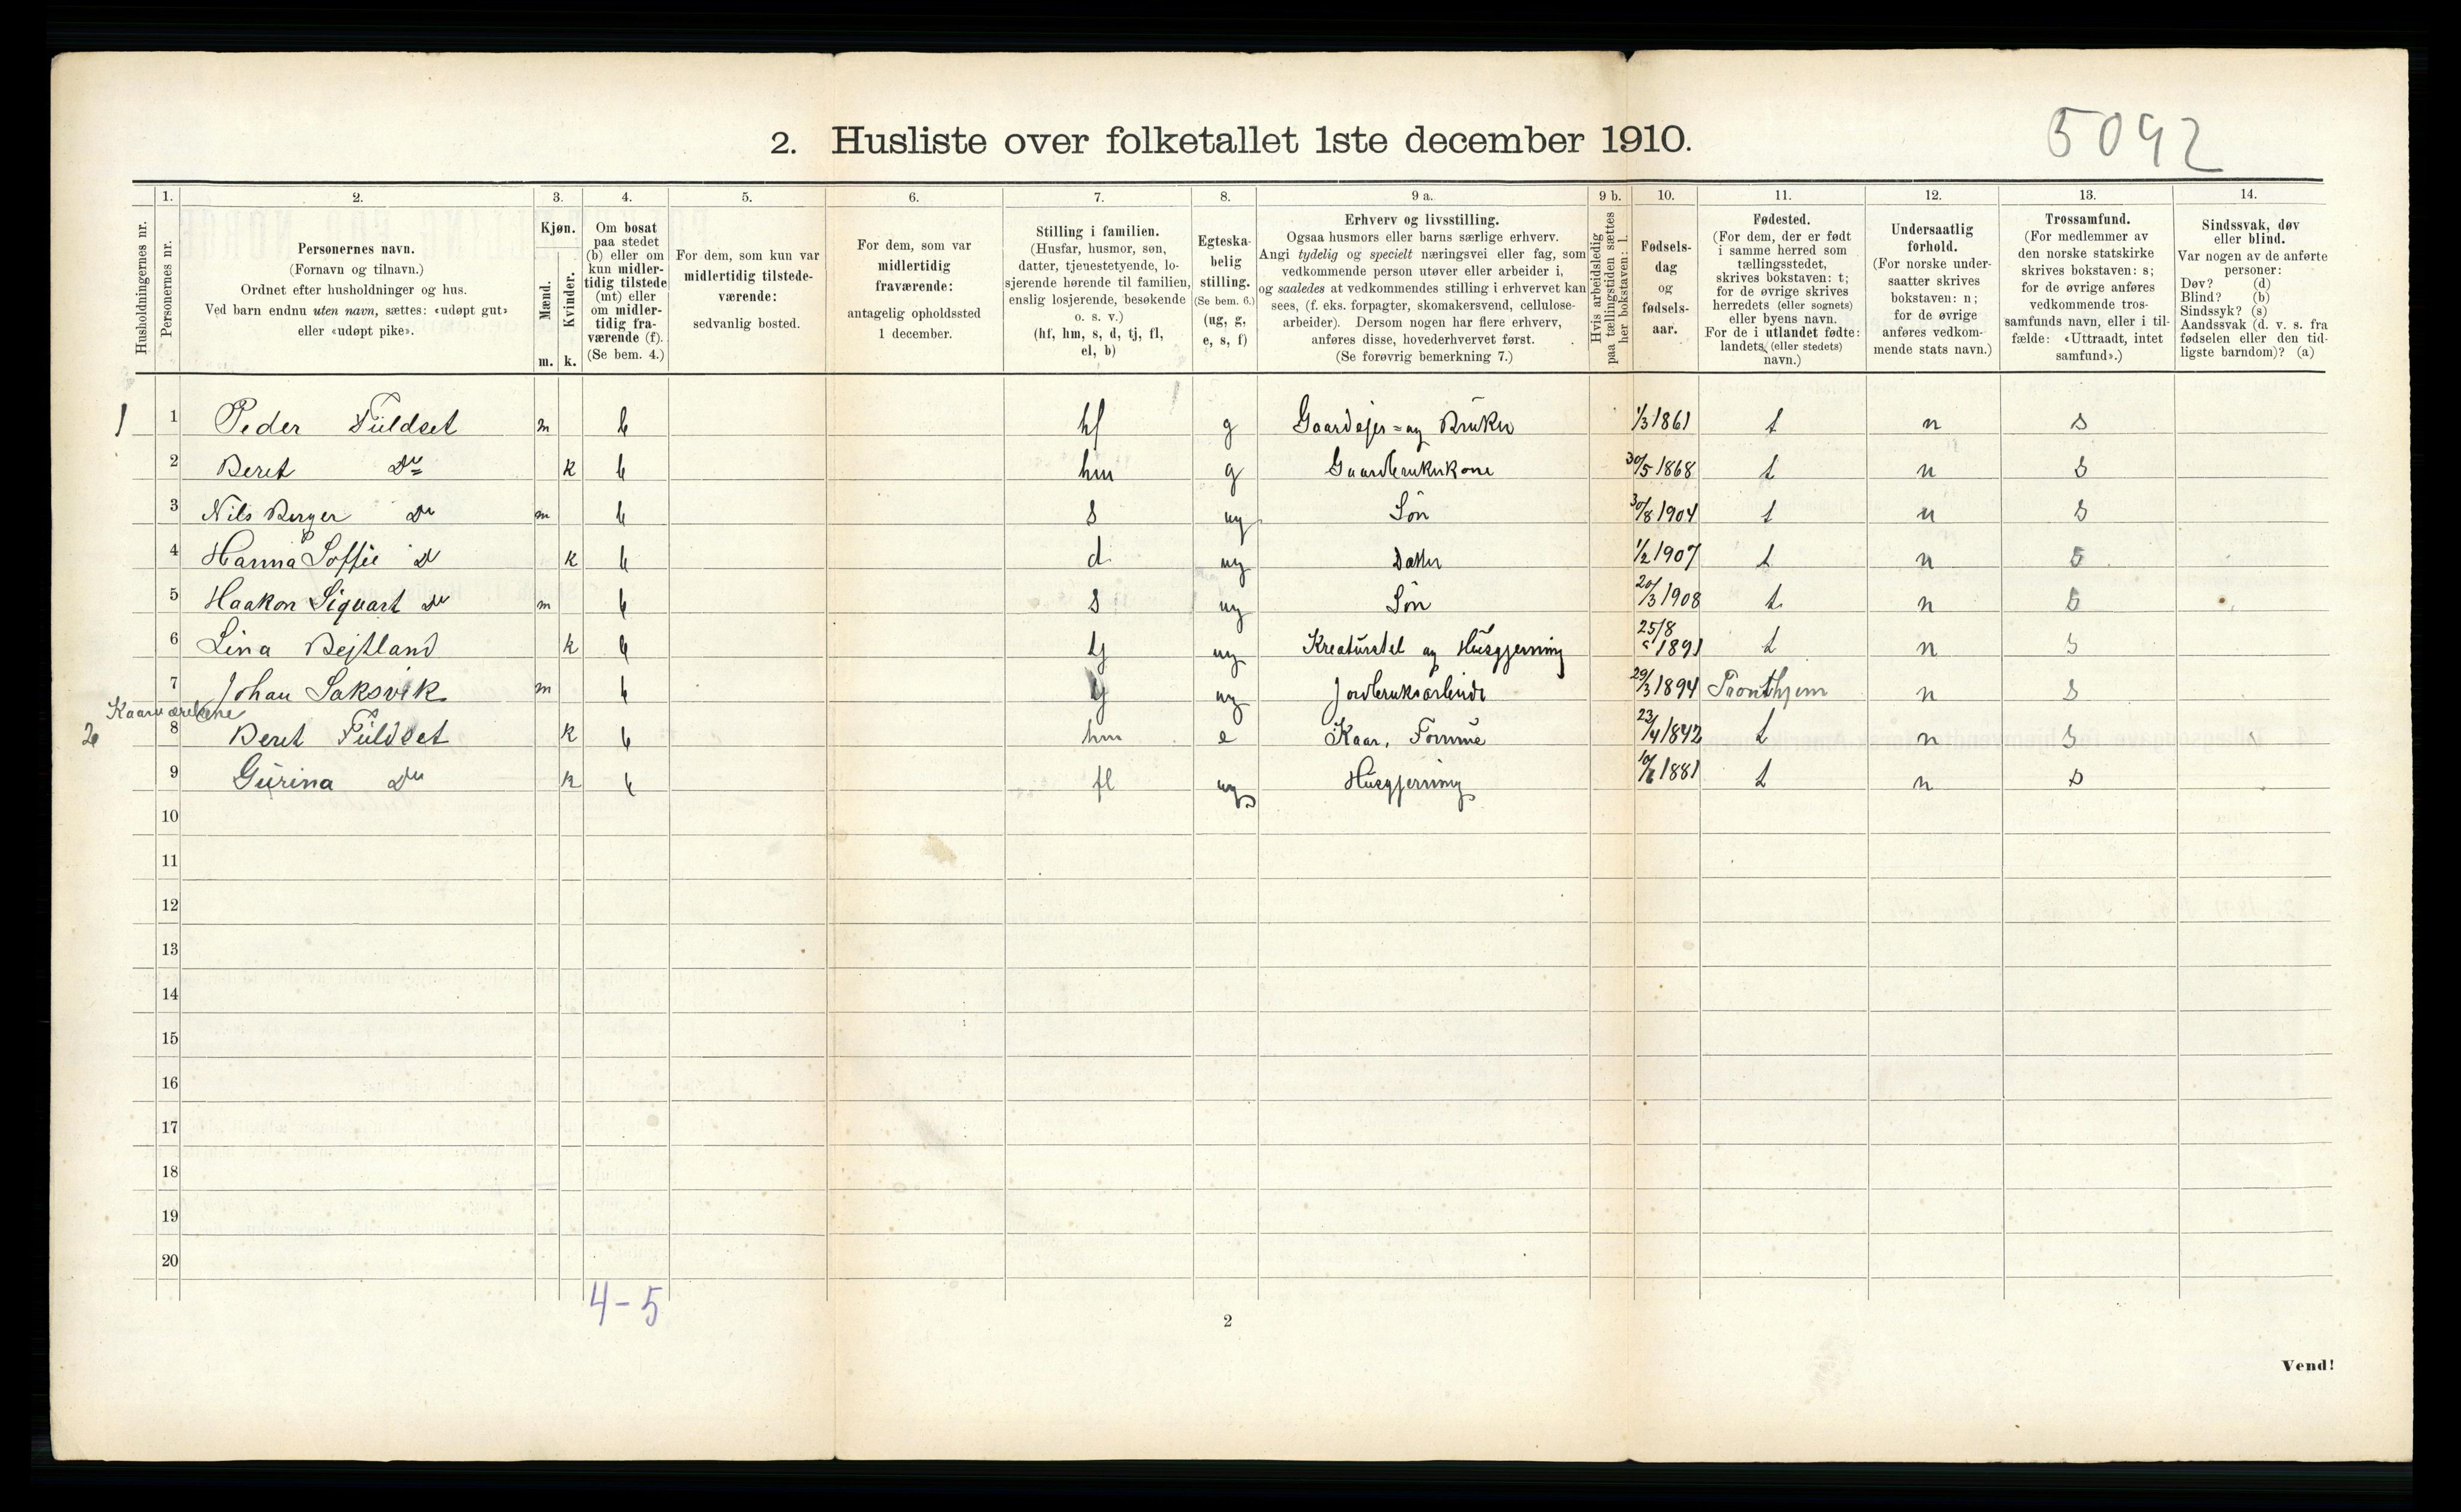 2. Husliste over folketallet 1ste december 1910.
5092
Husholdningernes nr.
1.
Personernes nr.
2.
Personernes navn.
(Fornavn og tilnavn.)
Ordnet efter husholdninger og hus.
Ved barn endnu uten navn, sættes: «udøpt gut»
eller «udøpt pike».
3.
Kjøn.
Mænd.
Kvinder.
m. k.
4.
Om bosat
paa stedet
(b) eller om
kun midler-
tidig tilstede
(mt) eller
om midler-
tidig fra-
værende (f).
(Se bem. 4.)
5.
For dem, som kun var
midlertidig tilstede-
værende:
sedvanlig bosted.
6.
For dem, som var
midlertidig
fraværende:
antagelig opholdssted
1 december.
7.
Stilling i familien.
(Husfar, husmor, søn,
datter, tjenestetyende, lo-
sjerende hørende til familien,
enslig losjerende, besøkende
o. s. v.)
(hf, hm, s, d, tj, fl,
el, b)
8.
Egteska-
belig
stilling.
(Se bem. 6.)
(ug, g,
e, s, f)
9 a.
Erhverv og livsstilling.
Ogsaa husmors eller barns særlige erhverv.
Angi tydelig og specielt næringsvei eller fag, som
vedkommende person utøver eller arbeider i,
og saaledes at vedkommendes stilling i erhvervet kan
sees, (f. eks. forpagter, skomakersvend, cellulose-
arbeider). Dersom nogen har flere erhverv,
anføres disse, hovederhvervet først.
(Se forøvrig bemerkning 7.)
9 b.
Hvis arbeidsledig
paa tællingstiden sættes
her bokstaven: l.
10.
Fødsels-
dag
og
fødsels-
aar.
11.
Fødested.
(For dem, der er født
i samme herred som
tællingsstedet,
skrives bokstaven: t;
for de øvrige skrives
herredets (eller sognets)
eller byens navn.
For de i utlandet fødte:
landets (eller stedets)
navn.)
12.
Undersaatlig
forhold.
(For norske under-
saatter skrives
bokstaven: n;
for de øvrige
anføres vedkom-
mende stats navn.)
13.
Trossamfund.
(For medlemmer av
den norske statskirke
skrives bokstaven: s;
for de øvrige anføres
vedkommende tros-
samfunds navn, eller i til-
fælde: «Uttraadt, intet
samfund».)
14.
Sindssvak, døv
eller blind.
Var nogen av de anførte
personer:
Døv? (d)
Blind? (b)
Sindssyk? (s)
Aandssvak (d. v. s. fra
fødselen eller den tid-
ligste barndom)? (a)
1 1 Peder Fuldset m b hf g Gaardejer=og Bruker 1/3 1861 t n s
2 Beret Do k b hm g Gaardbrukerkone 30/5 1868 t n s
3 Nils Berger Do m b s ug Søn 30/8 1904 t n s
4 Hanna Soffie D k b d ug Datter 1/2 1907 t n s
5 Haakon Siguart Do m b s ug Søn 20/3 1908 t n s
6 Lina Bejtland k b tj ug Kreaturstel og Husgjerning 25/8 1891 t n s
7 Johan Saksvik m b tj ug Jordbruksarbeide 29/3 1894 Tronthjem n s
2 8 Beret Fuldset k b hm e Kaar, 23/4 1842 t n s
9 Gurina Do k b fl ug Husgjerning 10/6 1881 t n s
10
11
12
13
14
15
16
17
18
19
20
4-5
2
Vend!